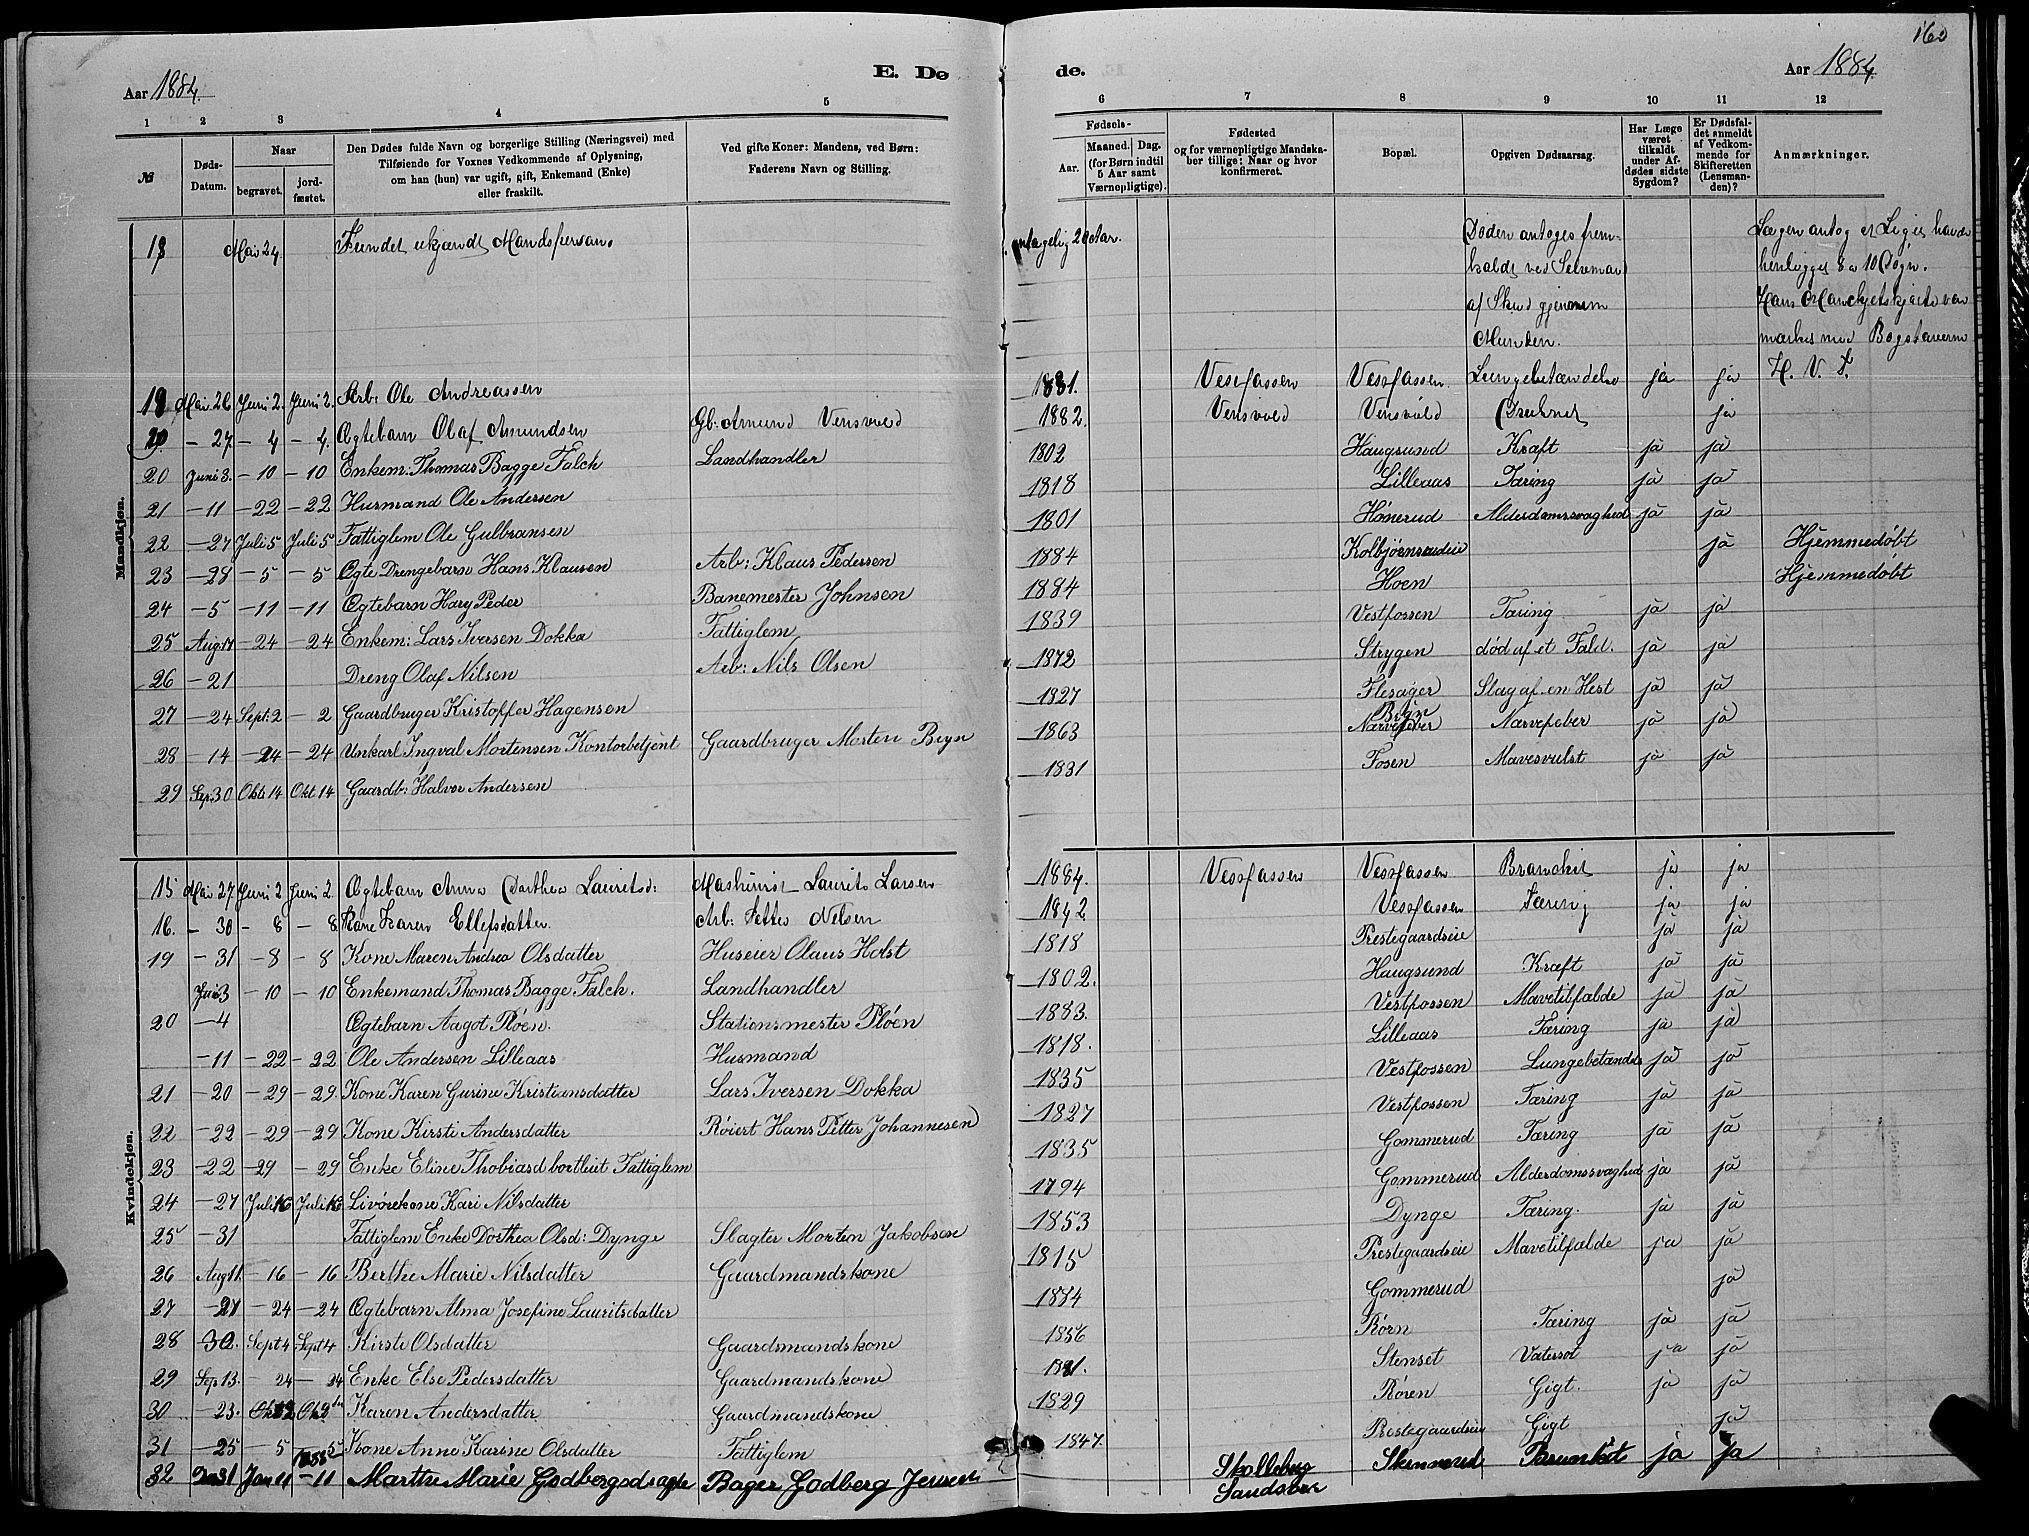 160
Aar 1884.
E. Dø
de.
Aar 1884.
1 2 3 4 5 6 7 8 9 10 11 12
№
Døds-Datum.
Naar
begravet.
jordfæstet.
Den Dødes fulde Navn og borgerlige Stilling (Næringsvei) med
Tilføiende for Voxnes Vedkommende af Oplysning,
om han (hun) var ugift, gift, Enkemand (Enke)
eller fraskilt.
Ved gifte Koner: Mandens, ved Børn:
Faderens Navn og Stilling.
Fødsels-
Aar.
Maaned. Dag.
(for Børn indtil
5 Aar samt
Værnepligtige).
Fødested
og for værnepligtige Mandskaber tillige: Naar og hvor
konfirmeret.
Bopæl.
Opgiven Dødsaarsag.
Har Læge
været
tilkaldt
under Afdødes sidste
Sygdom?
Er Dødsfaldet anmeldt
af Vedkommende for
Skifteretten
(Lensmanden)?
Anmærkninger.
Mandkjøn.
18 Mai 24 Fundet ukjendt Mandsperson. 20 Aar. Døden antoges frem- Lægen antog at Liget havde
kaldt ved Selvmord henligget 8 a 10 Døgn.
af Skud gjennem Hans Manchetskjorte var
Munden. mærket med Bogstaverne
H. V. F.
19 Mai 26 Juni 2. Juni 2. Arb: Ole Andreassen 1881. Vestfossen Vestfossen. Lungebetændelse ja ja
– 27. – 4 – 4. Ægtebarn Olaf Amundsen Gb: Amund Vensvold 1882. Vensvold Vensvold Druknet ja
20 Juni 3. – 10 – 10 Enkem: Thomas Bagge Falch Landhandler 1802 Haugsund Kræft ja ja
21 – 11 – 22 – 22 Husmand Ole Andersen 1818 Lilleaas Tæring ja ja
22 – 27 Juli 5 Juli 5 Fattiglem Ole Gulbransen 1801 Hønerud Alderdomssvaghed ja ja
23 – 28 – 5 – 5 Ægte Drengebarn Hans Klausen Arb: Klaus Pedersen 1884 Kolbjørnsrudeie ja Hjemmedøbt
24 – 5 – 11 – 11 Ægtebarn Hary Peder Banemester Johnsen 1884 Hoen Hjemmedøbt
25 Aug 17 – 24 – 24 Enkem: Lars Iversen Dokka Fattiglem 1839 Vestfossen Tæring ja ja
26 – 21 Dreng Olaf Nilsen Arb: Nils Olsen 1872 Strygen død af et Fald. ja ja
27 – 24 Sept: 2 – 2 Gaardbruger Kristoffer Hagensen 1827 Flesager Slag af en Hest ja ja
28 – 14 – 24 – 24 Unkarl Ingval Mortensen Kontorbetjent Gaardbruger Morten Bøgn 1863 Bøgn Nærvefeber Nærvefeber ja ja
29 Sep 30 Okt 14 Okt 14 Gaardb: Halvor Andersen 1831 Fosen Mavesvulst ja ja
Kvindekjøn.
15 Mai 27 Juni 2 Juni 2. Ægtebarn Anna Dorthea Lauritsd: Maskinist Laurits Larsen 1884. Vestfossen Vestfossen Bronchit ja ja
16. – 30 – 8 – 8 Kone Karen Ellefsdatter. Arb: Petter Nilsen 1842 Vestfossen Tæring ja ja
19 – 31 – 8 – 8 Kone Maren Andrea Olsdatter Huseier Olaus Holst 1818 Prestegaardseie ja ja
Juni 3 – 10 – 10 Enkemand Thomas Bagge Falch. Landhandler 1802. Haugsund Kræft ja ja
20 – 4 Ægtebarn Aagot Pløen. Stationsmester Pløen 1883. Vestfossen Mavetilfælde ja ja
– 11 – 22 – 22 Ole Andersen Lilleaas Husmand 1818. Lilleaas Tæring ja ja
21 – 20 – 29 – 29. Kone Karen Gurine Kristiansdatter Lars Iversen Dokka 1835 Vestfossen Lungebetændelse ja ja
22 – 22 – 29 – 29 Kone Kirsti Andersdatter Røiert Hans Petter Johannesen 1827 Vestfossen Tæring ja ja
23 – 22 – 29 – 29 Enke Eline Thobiasd bortleiet Fattiglem 1835 Gommerud Tæring ja ja
24 – 27 Juli 16 Juli 16 Livørekone Kari Nilsdatter 1794 Gommerud Alderdomssvaghed ja ja
25 – 31 Fattiglem Enke Dorthea Olsd: Dynge Slagter Morten Jakobsen 1853 Dynge Tæring. ja ja
26 Aug 11. – 16 – 16 Berthe Marie Nilsdatter Gaardmandskone 1815 Prestegaardseie Mavetilfælde ja ja
27 – 21 – 24 – 24 Ægtebarn Alma Josefine Lauritsdatter 1884 Gommerud ja
28 – 30. Sept 4 Sept 4 Kirsti Olsdatter Gaardsmandskone 1856 Rörn Tæring ja ja
29 Sep 13. – 24 – 24 Enke Else Pedersdatter Gaardmandskone Stenset Vatersot ja ja
30 – 23. Karen Andersdatter Gaardmandskone 1829 Røren Gigt. ja ja
31 – 25 – 5 – 5 Kone Anne Karine Olsdatter Fattiglem 1847. Prestegaardseie Gigt ja
32 31 Jan 11 – 11 Marthe Marie Godbergsdagte Bager Godberg Jensen Skolleborg Sandsvær ja ja